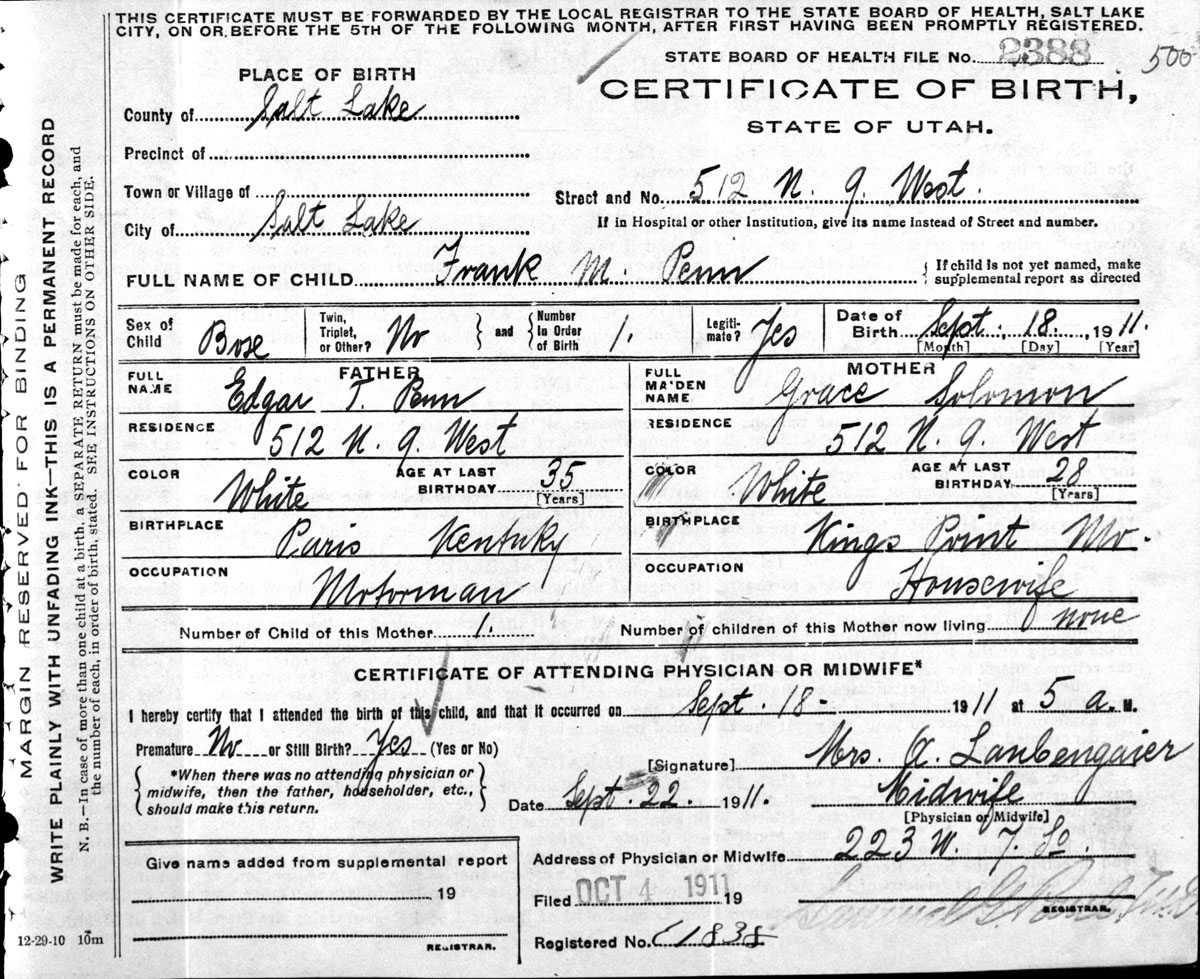 THIS CERTIFICATE MUST BE FORWARDED BY THE LOCAL REGISTRAR TO THE STATE BOARD OF HEALTH, SALT LAKE
CITY, ON OR BEFORE THE 5TH OF THE FOLLOWING MONTH, AFTER FIRST HAVING BEEN PROMPTLY REGISTERED.
STATE BOARD OF HEALTH FILE No. 2388 500
CERTIFICATE OF BIRTH,
STATE OF UTAH.
PLACE OF BIRTH
County of Salt Lake
Precinct of
Town or Village of
Street and No. 512 N. 9 West.
City of Salt Lake
If in Hospital or other Institution, give its name instead of Street and number.
FULL NAME OF CHILD Frank M. Penn { If child is not yet named, make
supplemental report as directed
Sex of Child Bose
Twin, Triplet, or Other? No } and { Number In Order of Birth 1.
Legiti-mate? Yes
Date of Birth Sept. 18. 1911.
[Month] [Day] [Year]
FATHER
FULL NAME Edgar T. Penn
RESIDENCE 512 N. 9 West
COLOR White AGE AT LAST BIRTHDAY 35 [Years]
BIRTHPLACE Paris Kentuky
OCCUPATION Motorman
MOTHER
FULL MAIDEN NAME Grace Solomon
RESIDENCE 512 N. 9 West
COLOR White AGE AT LAST BIRTHDAY 28 [Years]
BIRTHPLACE Kings Point Mo.
OCCUPATION Housewife
Number of Child of this Mother 1. Number of children of this Mother now living none
CERTIFICATE OF ATTENDING PHYSICIAN OR MIDWIFE*
I hereby certify that I attended the birth of this child, and that it occurred on Sept. 18- 1911 at 5 a. M.
Premature No or Still Birth? Yes (Yes or No)
{ *When there was no attending physician or
midwife, then the father, householder, etc.,
should make this return. }
[Signature] Mrs. A. Laubengaier
Date Sept. 22. 1911. Midwife
[Physician or Midwife]
Address of Physician or Midwife 223 W. 7. So.
Give name added from supplemental report
19
REGISTRAR.
Filed OCT 4 1911 19
REGISTRAR.
Registered No. C1838
12-29-10 10m
MARGIN RESERVED FOR BINDING
WRITE PLAINLY WITH UNFADING INK—THIS IS A PERMANENT RECORD
N. B.—In case of more than one child at a birth, a SEPARATE RETURN must be made for each, and
the number of each, in order of birth, stated. SEE INSTRUCTIONS ON OTHER SIDE.